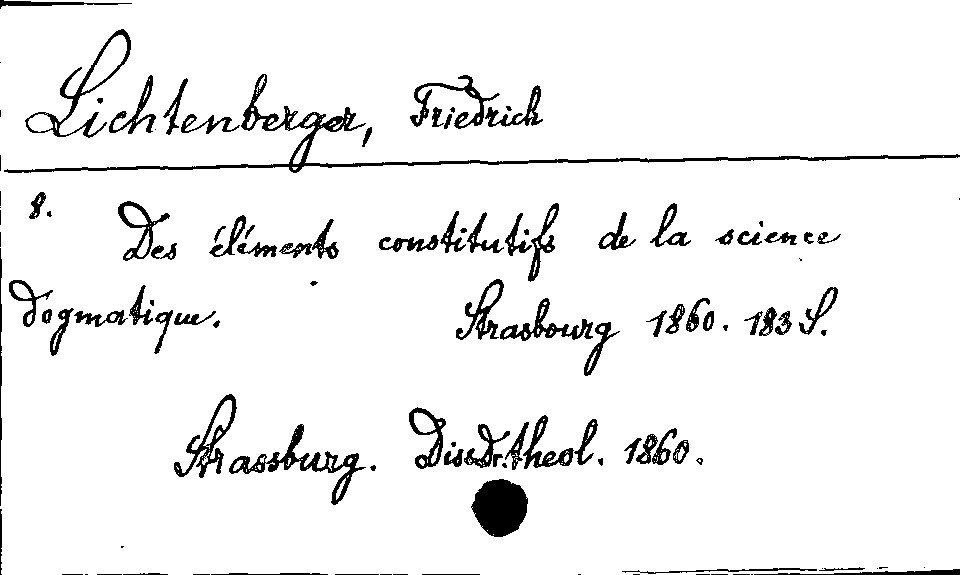 Lichtenberger, Friedrich
8.
Des éléments constitutifs de la science
dogmatique. Strasbourg 1860. 183 S.
Strassburg. Diss.Dr.theol. 1860.